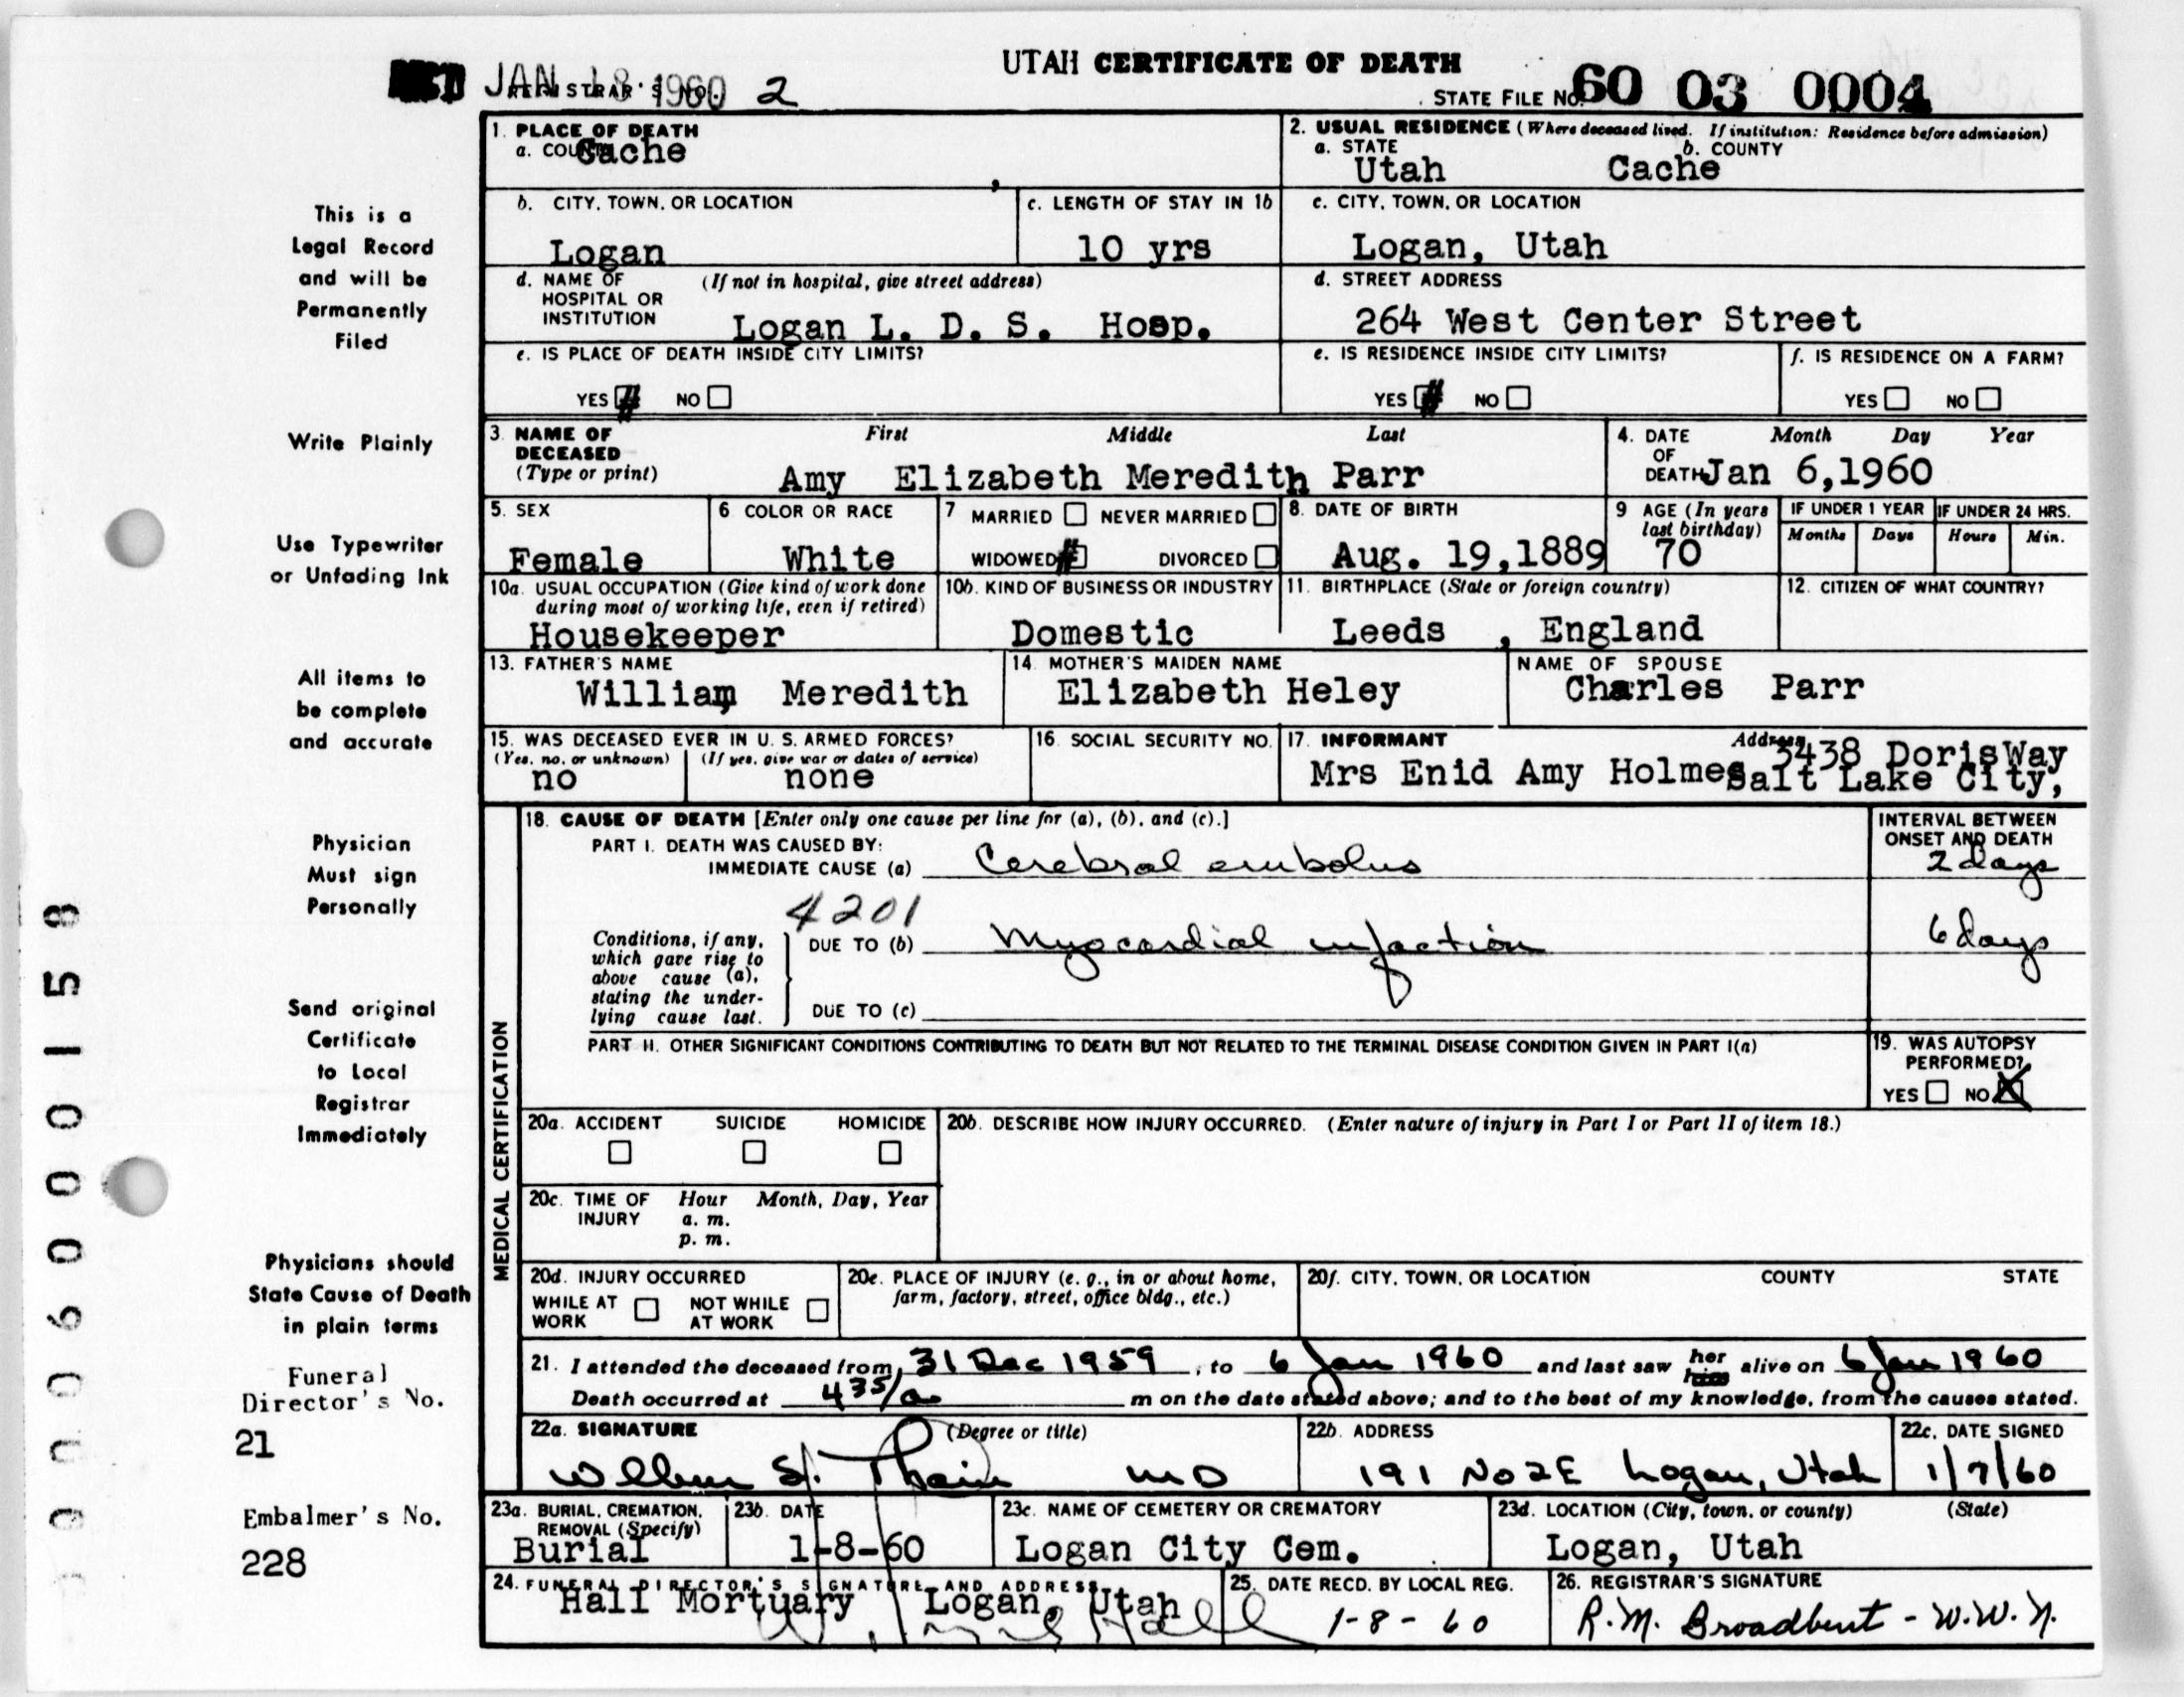 UTAH CERTIFICATE OF DEATH
JAN 18 1960 2
REGISTRAR'S NO.
STATE FILE NO. 60 03 0004
1. PLACE OF DEATH
a. COUNTY
Cache
2. USUAL RESIDENCE (Where deceased lived. If institution: Residence before admission)
a. STATE b. COUNTY
Utah Cache
b. CITY, TOWN, OR LOCATION
Logan
c. LENGTH OF STAY IN 1b
10 yrs
c. CITY, TOWN, OR LOCATION
Logan, Utah
d. NAME OF (If not in hospital, give street address)
HOSPITAL OR
INSTITUTION
Logan L. D. S. Hosp.
d. STREET ADDRESS
264 West Center Street
e. IS PLACE OF DEATH INSIDE CITY LIMITS?
YES NO
e. IS RESIDENCE INSIDE CITY LIMITS?
YES NO
f. IS RESIDENCE ON A FARM?
YES NO
3. NAME OF First Middle Last
DECEASED
(Type or print)
Amy Elizabeth Meredith Parr
4. DATE Month Day Year
OF
DEATH Jan 6,1960
5. SEX
Female
6 COLOR OR RACE
White
7 MARRIED NEVER MARRIED
WIDOWED DIVORCED
8. DATE OF BIRTH
Aug. 19,1889
9 AGE (In years
last birthday)
70
IF UNDER 1 YEAR
Months Days
IF UNDER 24 HRS.
Hours Min.
10a. USUAL OCCUPATION (Give kind of work done
during most of working life, even if retired)
Housekeeper
10b. KIND OF BUSINESS OR INDUSTRY
Domestic
11. BIRTHPLACE (State or foreign country)
Leeds , England
12. CITIZEN OF WHAT COUNTRY?
13. FATHER'S NAME
William Meredith
14. MOTHER'S MAIDEN NAME
Elizabeth Heley
NAME OF SPOUSE
Charles Parr
15. WAS DECEASED EVER IN U. S. ARMED FORCES?
(Yes, no, or unknown) (If yes, give war or dates of service)
no none
16. SOCIAL SECURITY NO.
17. INFORMANT Address
Mrs Enid Amy Holmes 3438 DorisWay
Salt Lake City,
MEDICAL CERTIFICATION
18. CAUSE OF DEATH [Enter only one cause per line for (a), (b), and (c).]
PART I. DEATH WAS CAUSED BY:
IMMEDIATE CAUSE (a) Cerebral embolus
INTERVAL BETWEEN
ONSET AND DEATH
2 days
4201
Conditions, if any,
which gave rise to
above cause (a),
stating the under-
lying cause last.
DUE TO (b) Myocardial infaction
6 days
DUE TO (c)
PART II. OTHER SIGNIFICANT CONDITIONS CONTRIBUTING TO DEATH BUT NOT RELATED TO THE TERMINAL DISEASE CONDITION GIVEN IN PART I(a)
19. WAS AUTOPSY
PERFORMED?
YES NO
20a. ACCIDENT SUICIDE HOMICIDE
20b. DESCRIBE HOW INJURY OCCURRED. (Enter nature of injury in Part I or Part II of item 18.)
20c. TIME OF Hour Month, Day, Year
INJURY a. m.
p. m.
20d. INJURY OCCURRED
WHILE AT NOT WHILE
WORK AT WORK
20e. PLACE OF INJURY (e. g., in or about home,
farm, factory, street, office bldg., etc.)
20f. CITY, TOWN, OR LOCATION COUNTY STATE
21. I attended the deceased from 31 Dec 1959, to 6 Jan 1960 and last saw her him alive on 6 Jan 1960
Death occurred at 435/a m on the date stated above; and to the best of my knowledge, from the causes stated.
22a. SIGNATURE (Degree or title)
Wilbur S. Thain MD
22b. ADDRESS
191 No 2E Logan, Utah
22c. DATE SIGNED
1/7/60
23a. BURIAL, CREMATION,
REMOVAL (Specify)
Burial
23b. DATE
1-8-60
23c. NAME OF CEMETERY OR CREMATORY
Logan City Cem.
23d. LOCATION (City, town, or county) (State)
Logan, Utah
24. FUNERAL DIRECTOR'S SIGNATURE AND ADDRESS
Hall Mortuary Logan, Utah
Hall
25. DATE RECD. BY LOCAL REG.
1-8-60
26. REGISTRAR'S SIGNATURE
R.M. Broadbent - W.W.N.
This is a
Legal Record
and will be
Permanently
Filed
Write Plainly
Use Typewriter
or Unfading Ink
All items to
be complete
and accurate
Physician
Must sign
Personally
Send original
Certificate
to Local
Registrar
Immediately
Physicians should
State Cause of Death
in plain terms
Funeral
Director's No.
21
Embalmer's No.
228